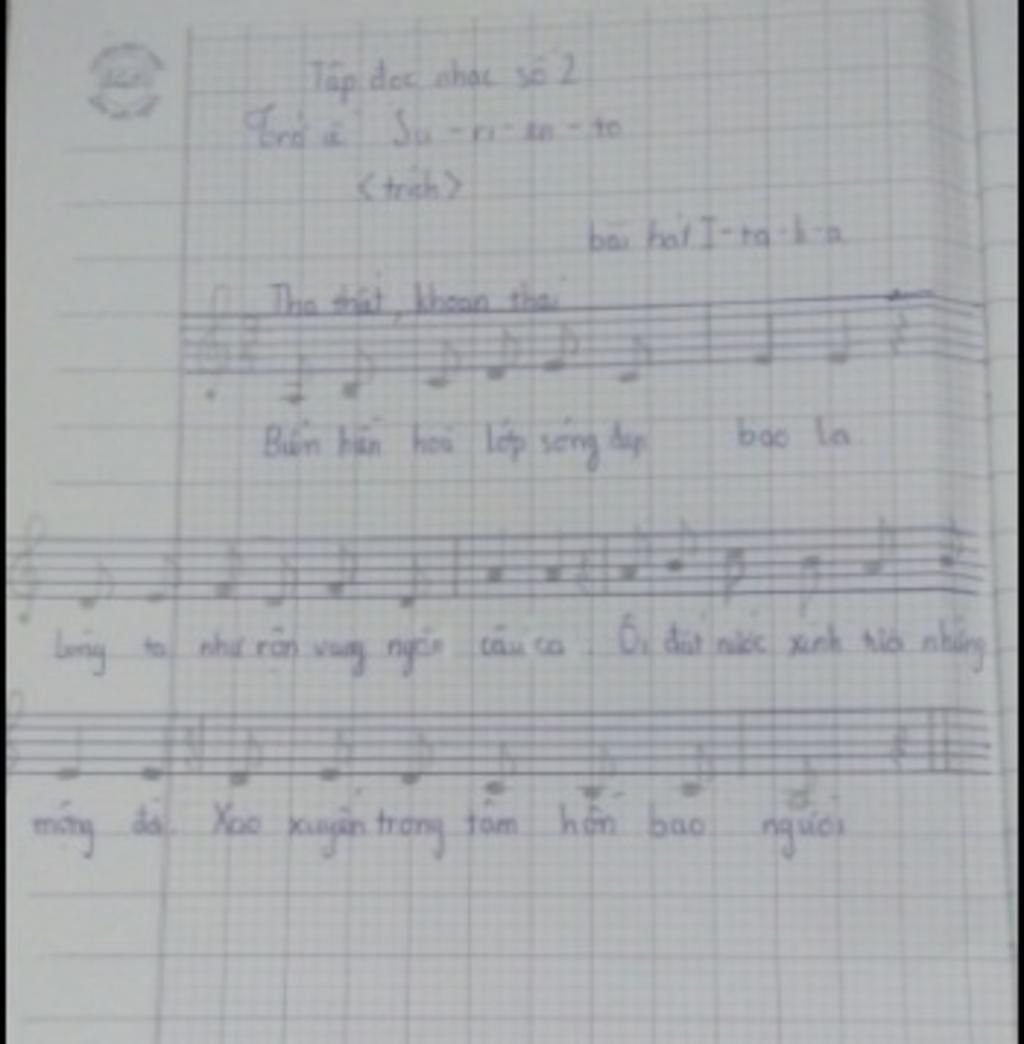 Tập đọc nhạc số 2
Trở về Su-ri-en-to
<trích>
bài hát I-ta-li-a
Tha thiết, khoan thai
Biển hiền hoà lớp sóng đẹp bao la
Lòng ta như rộn vang ngàn câu ca. Ôi đất nước xinh tươi những
móng đá. Xao xuyến trong tâm hồn bao người